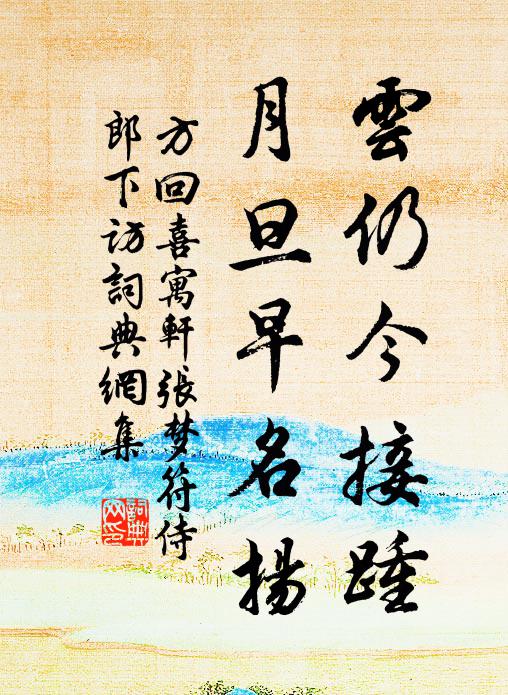 雲仍今接踵
月旦早名揚
方回喜寓軒張梦符侍
郎下访詞典網集